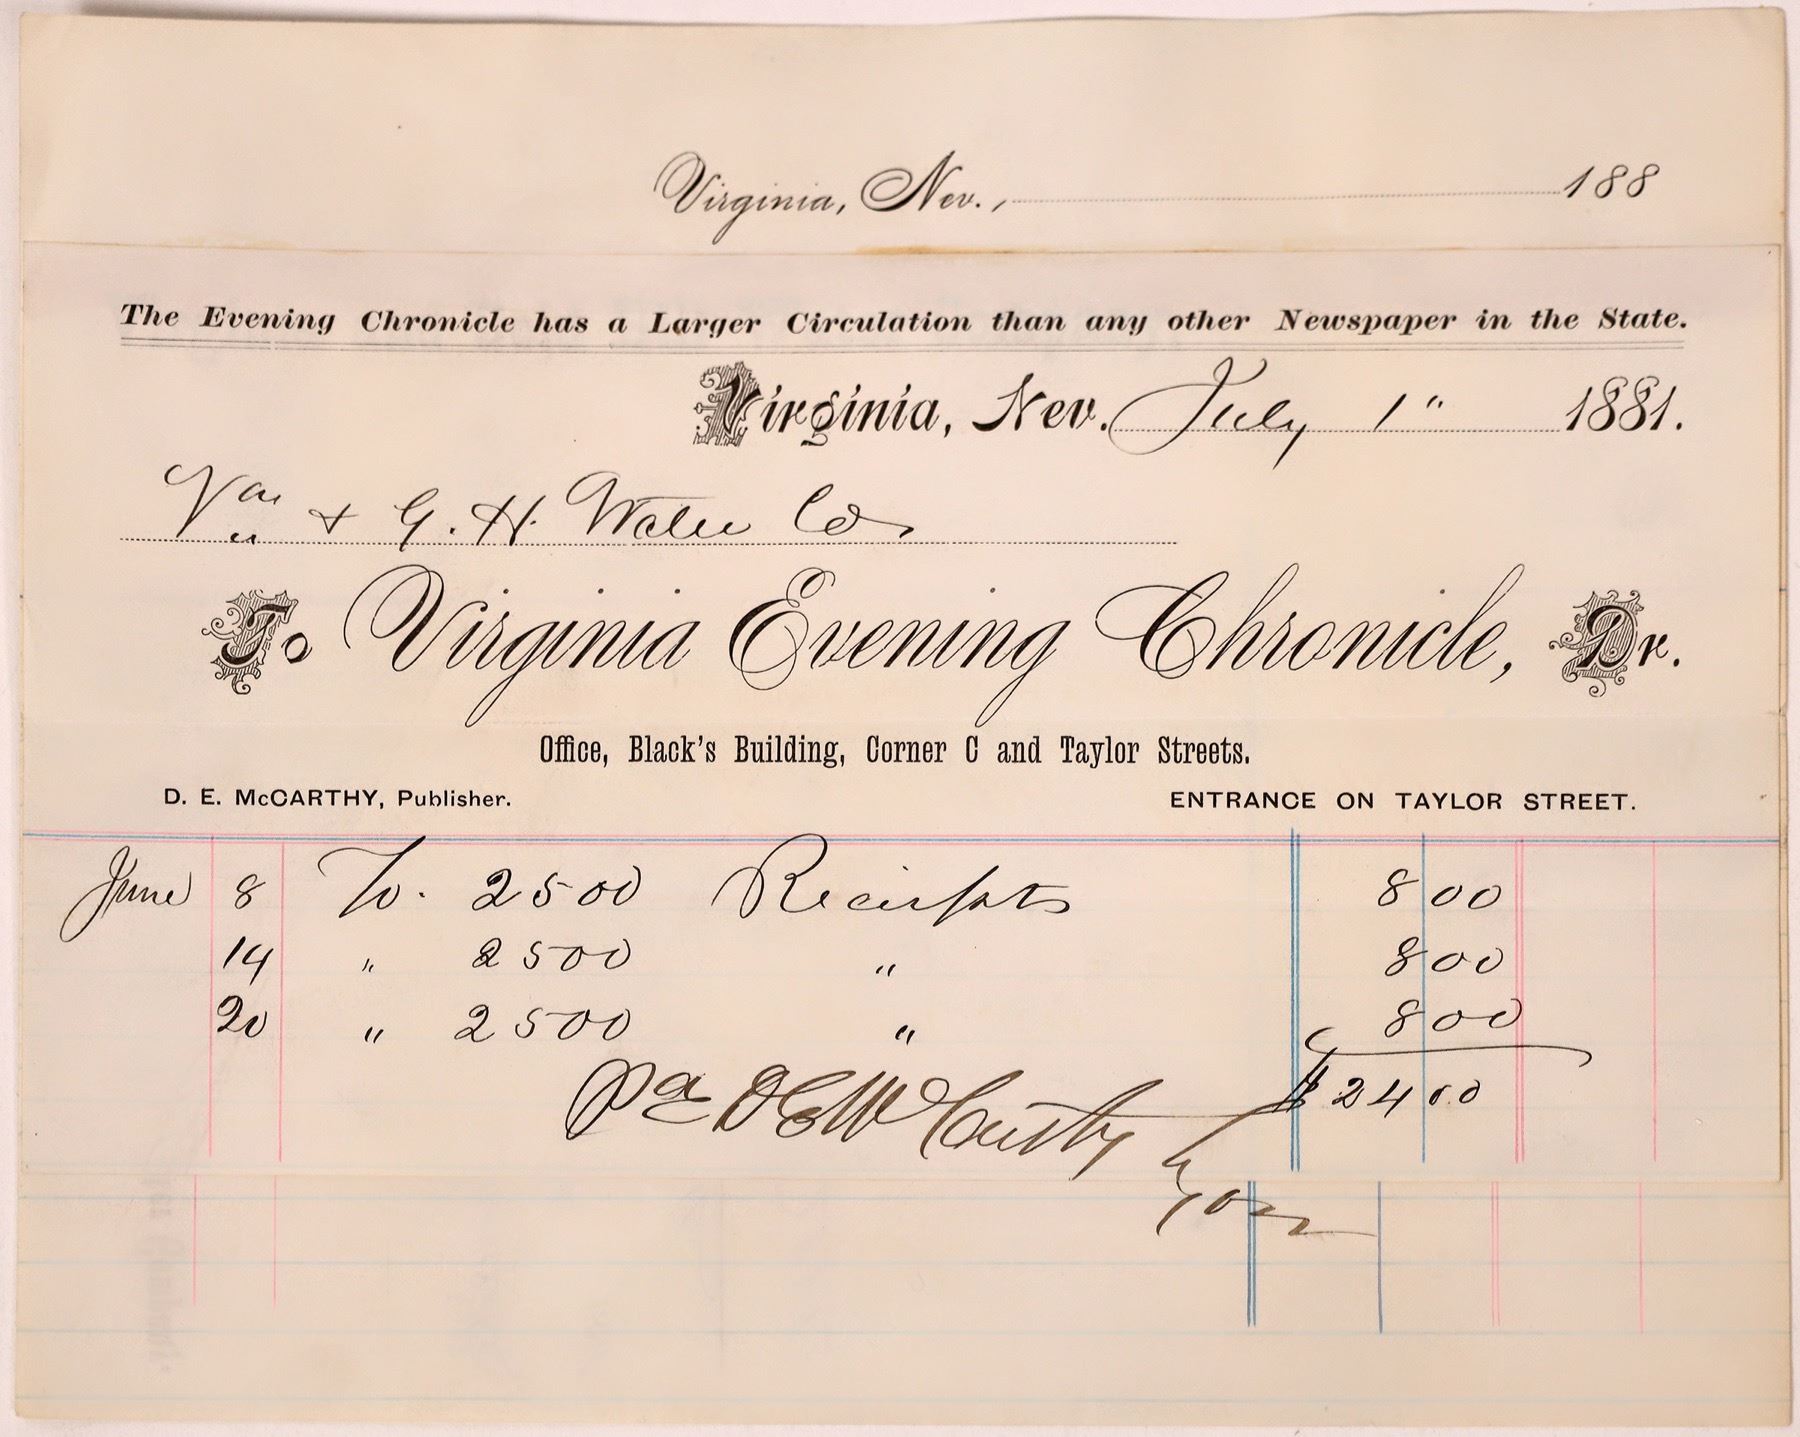 Virginia, Nev., 188
The Evening Chronicle has a Larger Circulation than any other Newspaper in the State.
Virginia, Nev. July 1" 1881.
Va & G. H. Water Co
To Virginia Evening Chronicle, Dr.
Office, Black's Building, Corner C and Taylor Streets.
D. E. McCARTHY, Publisher. ENTRANCE ON TAYLOR STREET.
June 8 To. 2500 Receipts 8 00
14 " 2500 " 8 00
20 " 2500 " 8 00
Pd D E McCarthy $ 24 00